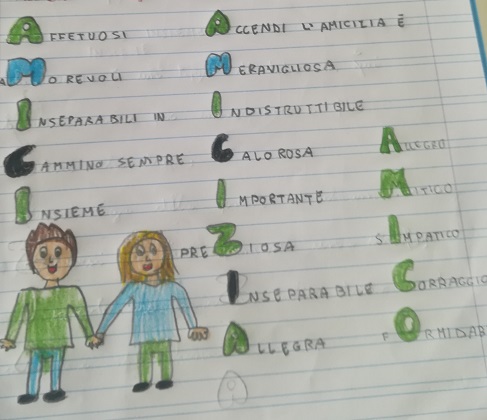 AFFETUOSI
AMOREVOLI
INSEPARABILI IN
CAMMINO SEMPRE
INSIEME
ACCENDI L'AMICILIA È
MERAVIGLIOSA
INDISTRUTTIBILE
CALOROSA
IMPORTANTE
PREZIOSA
INSEPARABILE
ALLEGRA
ALLEGRO
MITICO
SIMPATICO
CORRAGGIO
FORMIDAB